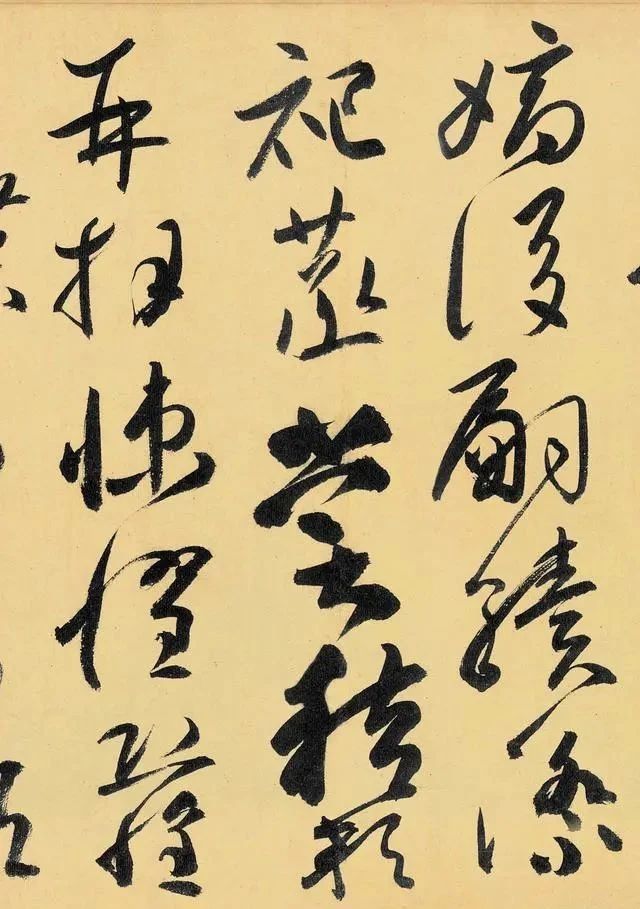 嫡后嗣續祭
祀蒸嘗稽顙
再拜悚懼恐惶